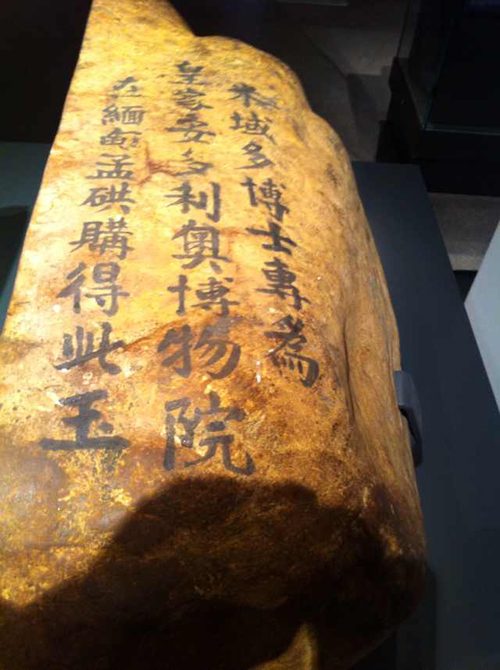 木域多博士專為
皇家安多利奧博物院
在緬甸孟硔購得此玉